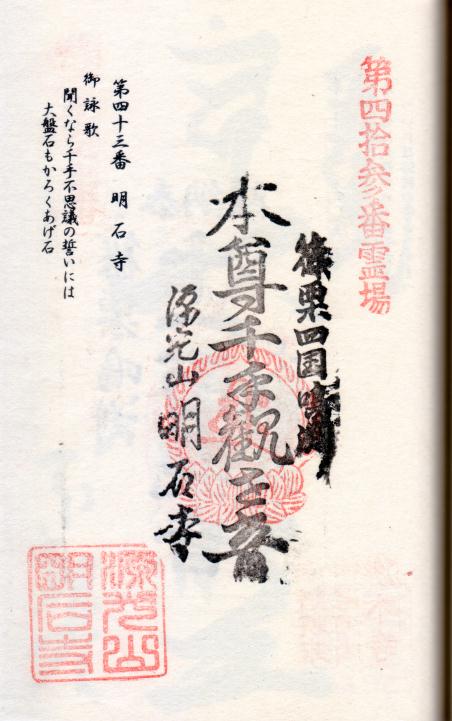 第四拾参番霊場
篠栗四国
本尊千手観世音
源光山 明石寺
第四十三番 明石寺
御詠歌
聞くなら千手不思議の誓いには
大盤石もかろくあげ石
源光山
明石寺